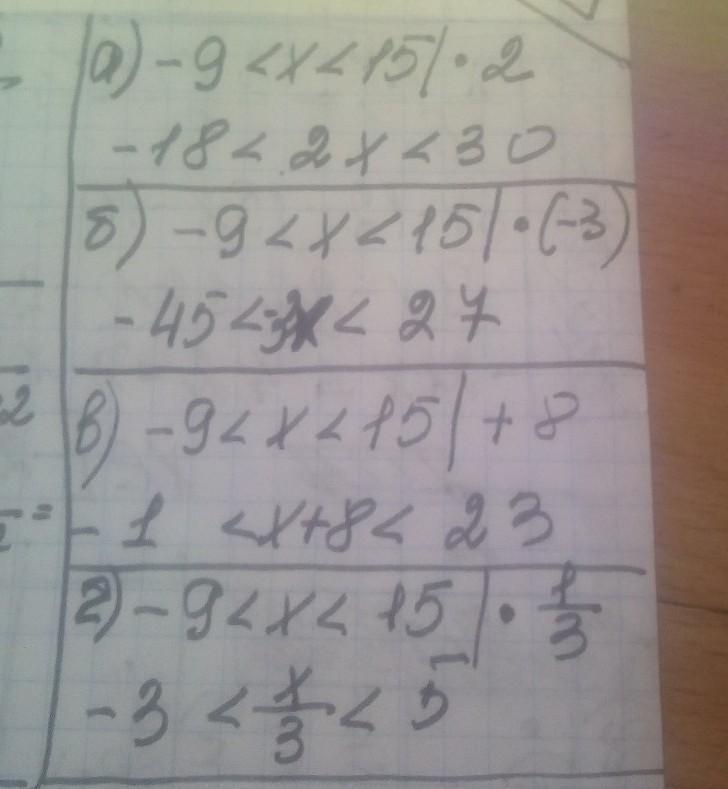 а) -9 < x < 15 | · 2
-18 < 2x < 30
б) -9 < x < 15 | · (-3)
-45 < -3x < 27
в) -9 < x < 15 | + 8
-1 < x+8 < 23
г) -9 < x < 15 | · 1/3
-3 < x/3 < 5